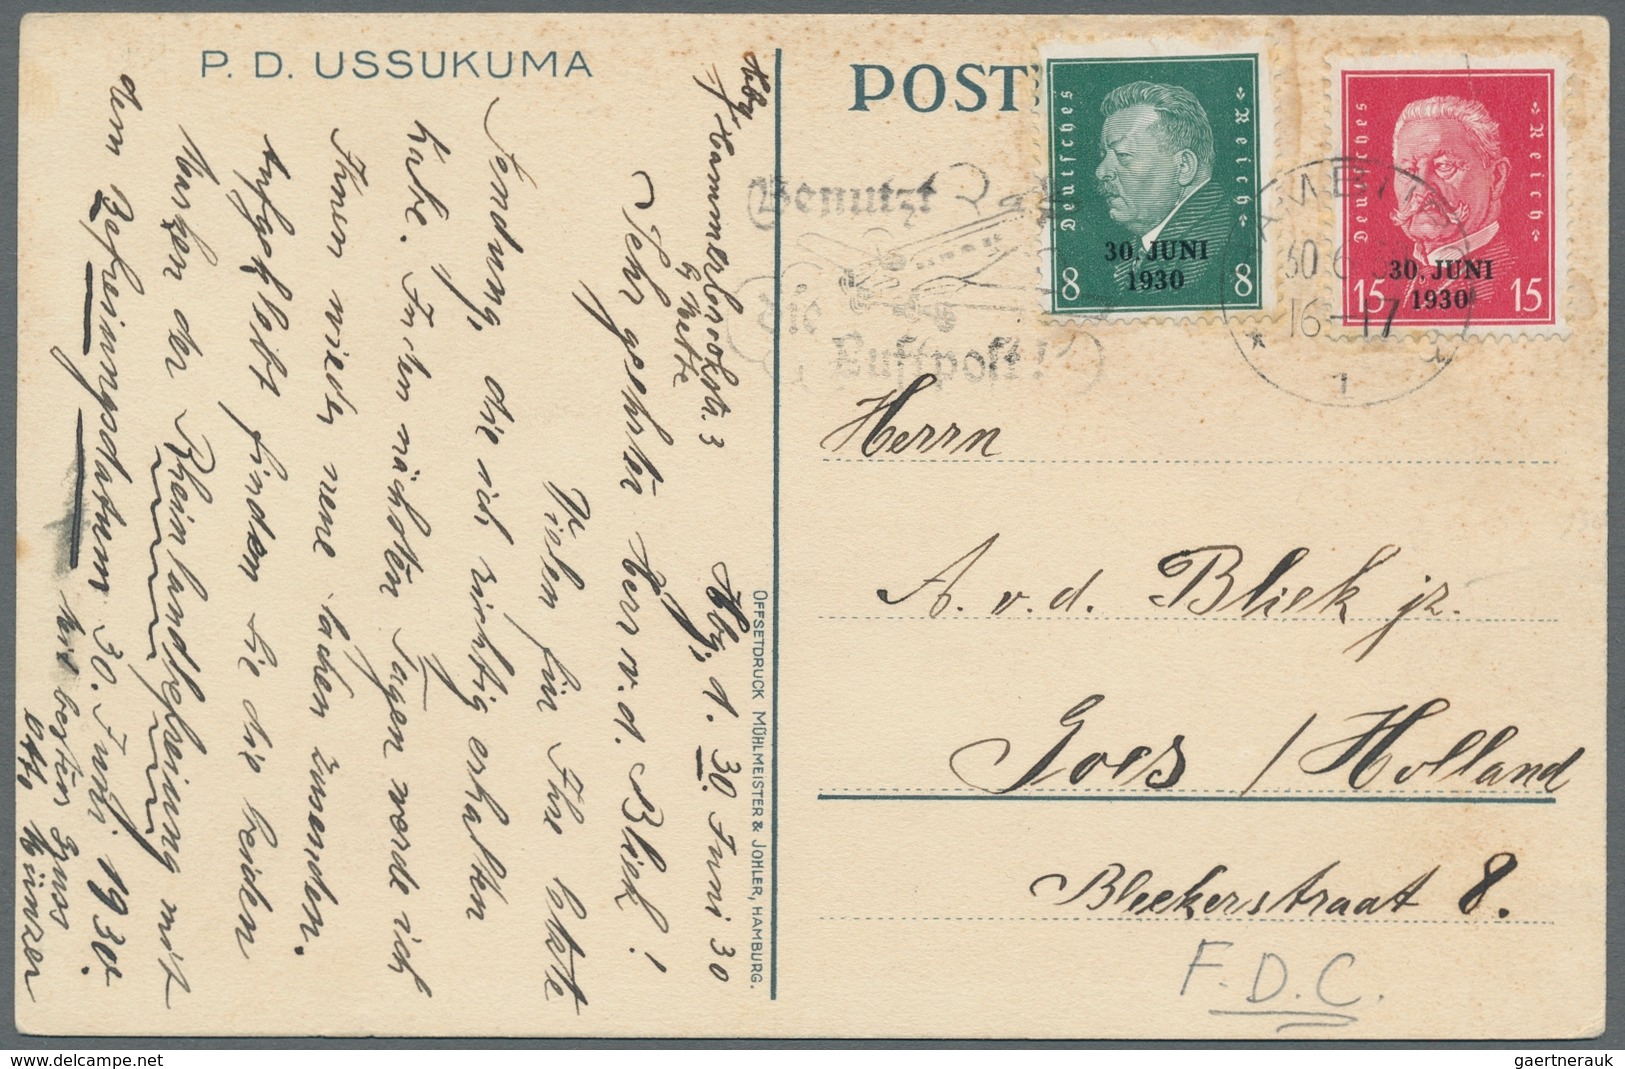 P. D. USSUKUMA
POST
Deutsches Reich
30. JUNI
1930
8 8
Deutsches Reich
30. JUNI
1930
15 15
Benutzt
die
Luftpost!
30.6.
16-17
* 1 *
Hbg, d. 30. Juni 30
Sehr geehrter Herr v. d. Bliek!
Vielen für Ihre letzte
Sendung, die ich richtig erhalten
habe. In den nächsten Tagen werde ich
Ihnen wieder neue Sachen zusenden.
Aufgeklebt finden Sie die beiden
Marken der Rheinlandbefreiung mit
dem Befreiungsdatum 30. Juni 1930.
Mit besten Gruss
Otto Münzer
OFFSETDRUCK MÜHLMEISTER & JOHLER, HAMBURG.
Herrn
A. v. d. Bliek jz.
Goes / Holland
Bleekerstraat 8.
F.D.C.
gaertnerauk